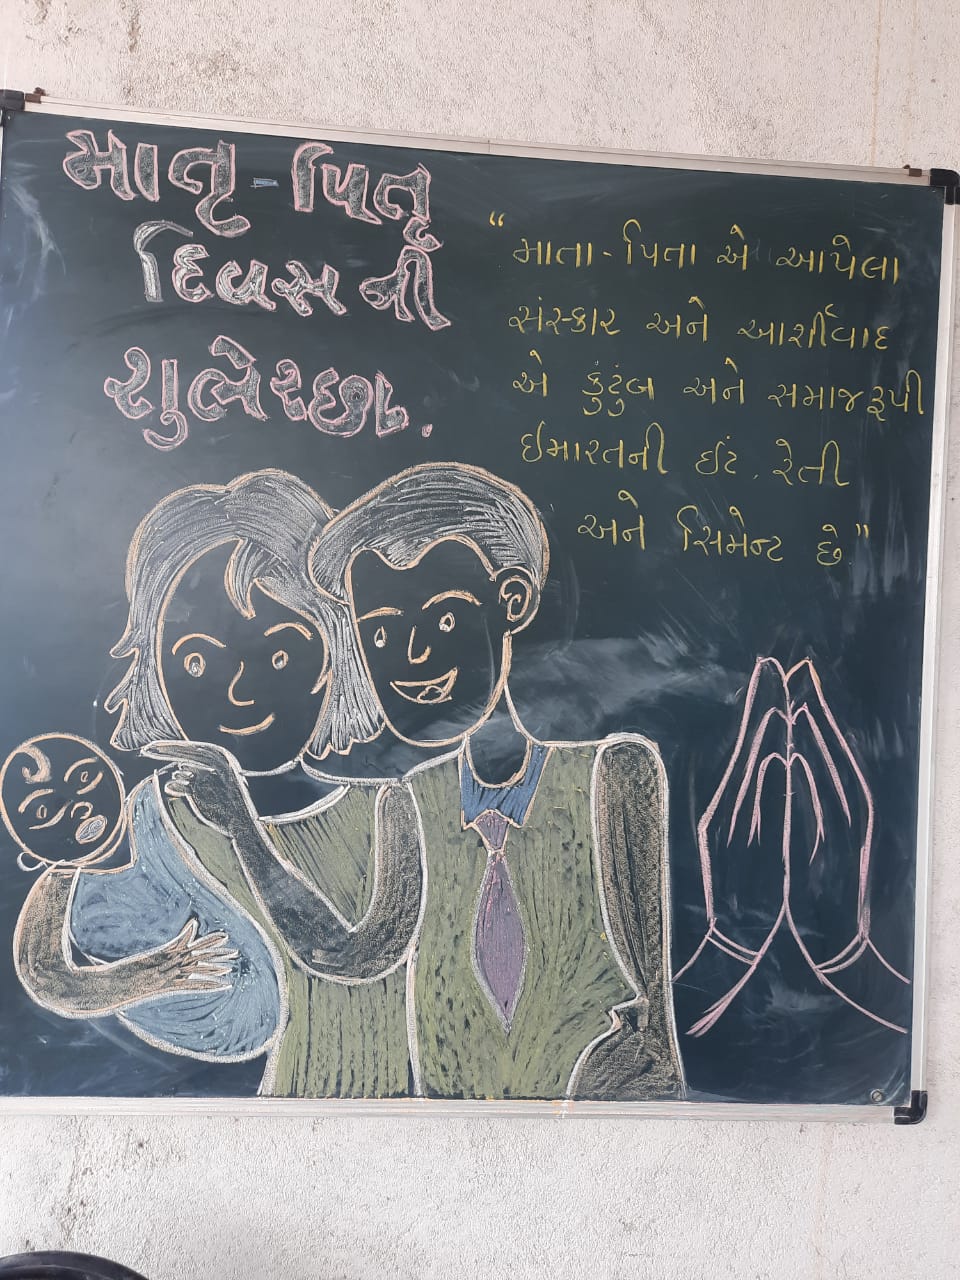 માતૃ - પિતૃ
દિવસ ની
શુભેચ્છા.
“ માતા - પિતા એ આપેલા
સંસ્કાર અને આર્શીવાદ
એ કુંટુંબ અને સમાજરૂપી
ઈમારતની ઈંટ, રેતી
અને સિમેન્ટ છે ”